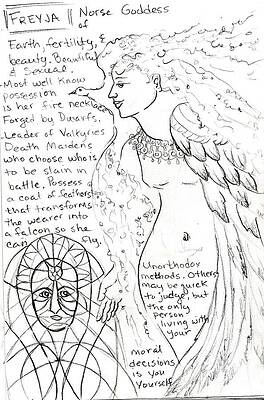 FREYJA || Norse Goddess
of
Earth, fertility, &
beauty. Beautiful
& Sexual.
Most well know
possession
is her fire necklace
Forged by Dwarfs.
Leader of Valkyries
Death Maidens
who choose who is
to be slain in
battle. Possess
a coat of feathers
that transforms
the wearer into
a falcon so she
can fly.
Unorthodox
methods. Others
may be quick
to judge, but
the only
person
living with
your
moral
decisions
is You
Yourself